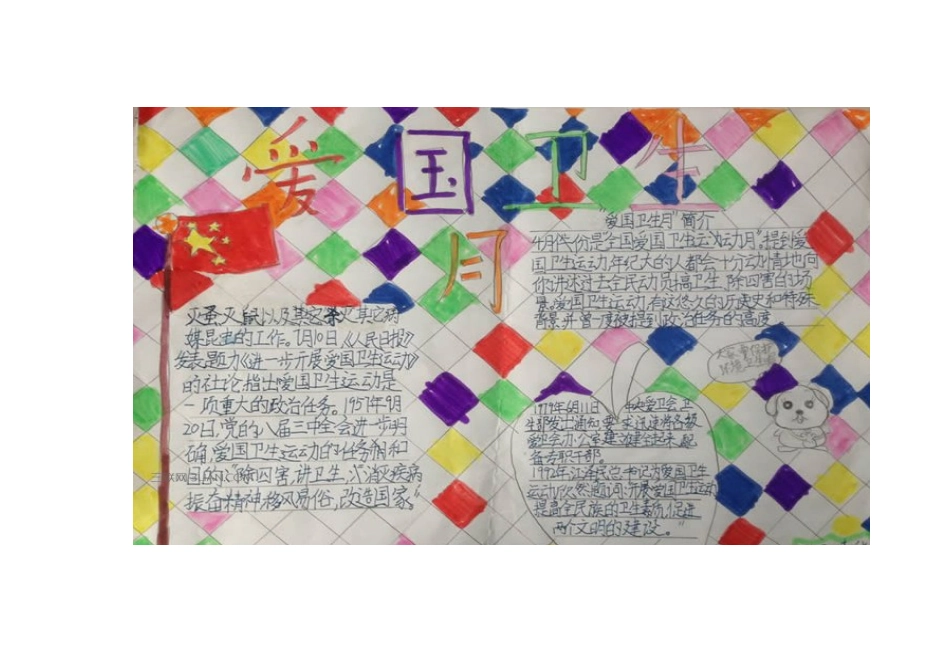 爱国卫生
月
"爱国卫生月"简介
4月份是全国爱国卫生运动月"。提到爱
国卫生运动,年纪大的人都会十分动情地向
你讲述过去全民动员搞卫生、除四害的场
景。爱国卫生运动有这悠久的历史和特殊
背景,并曾一度被提到政治任务的高度
灭蚤、灭鼠以及其它病
媒昆虫的工作。7月10日《人民日报》
发表题为《进一步开展爱国卫生运动》
的社论,指出爱国卫生运动是
一项重大的政治任务。1957年9月
20日,党的八届三中全会进一步明
确,爱国卫生运动的任务和
目的:"除四害,讲卫生,消灭疾病
振奋精神,移风易俗,改造国家。"
大家
环境卫生
1979年6月11日 中央爱卫会、卫
生部发出通知,要求迅速将各级
爱卫会办公室建立健全起来,配
备专职干部。
1992年江泽民总书记为爱国卫生
运动 开展爱国卫生运动
提高全民族的卫生素质,促进
两个文明的建设。"